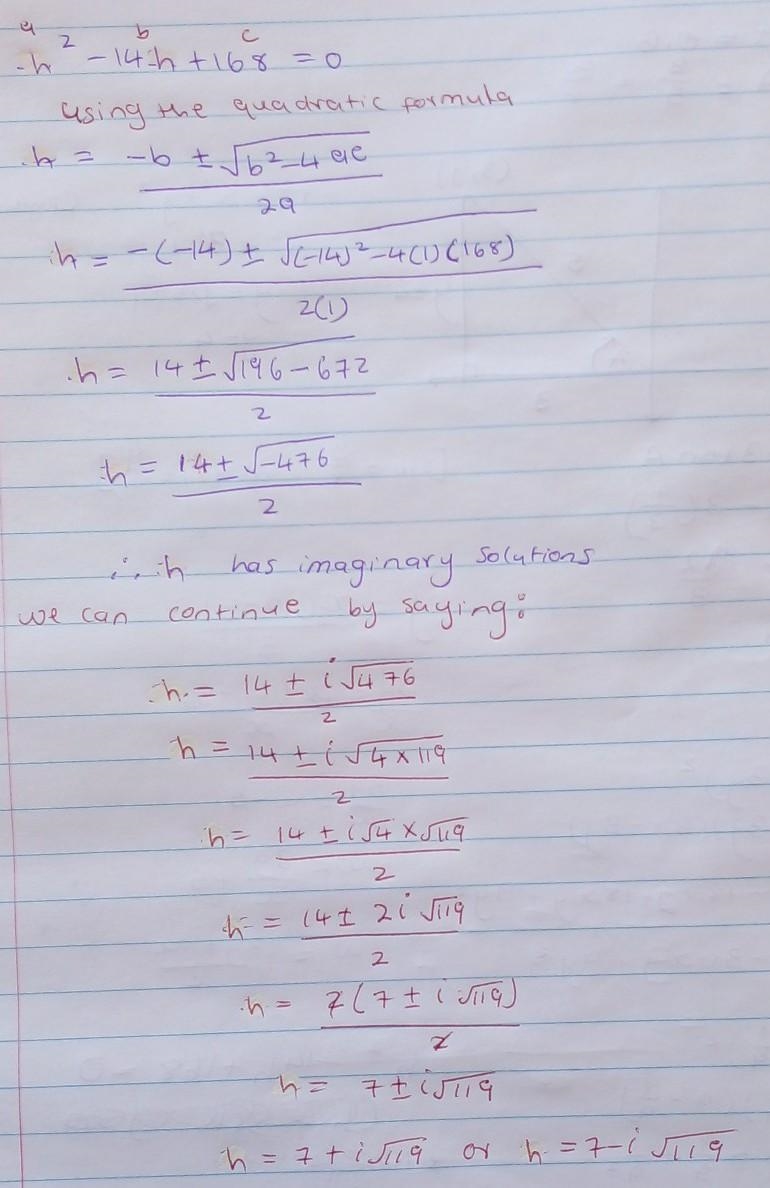 a b c
h² - 14h + 168 = 0
using the quadratic formula
h = (-b ± √(b² - 4ac)) / 2a
h = (-(-14) ± √((-14)² - 4(1)(168))) / 2(1)
h = (14 ± √(196 - 672)) / 2
h = (14 ± √(-476)) / 2
∴ h has imaginary solutions
we can continue by saying:
h = (14 ± i√476) / 2
h = (14 ± i√(4 × 119)) / 2
h = (14 ± i√4 × √119) / 2
h = (14 ± 2i√119) / 2
h = 2(7 ± i√119) / 2
h = 7 ± i√119
h = 7 + i√119 or h = 7 - i√119